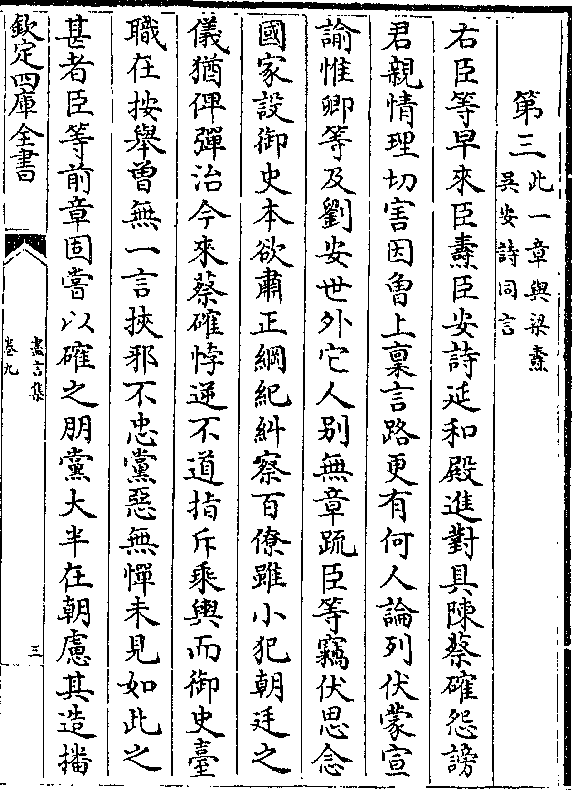 第三此一章與梁燾
吳安詩同言
右臣等早來臣燾臣安詩延和殿進對具陳蔡確怨謗
君親情理切害因曾上稟言路更有何人論列伏蒙宣
諭惟卿等及劉安世外它人别無章疏臣等竊伏思念
國家設御史本欲肅正綱紀糾察百僚雖小犯朝廷之
儀猶俾彈治今來蔡確悖逆不道指斥乘輿而御史臺
職在按舉曽無一言挾邪不忠黨惡無憚未見如此之
甚者臣等前章固嘗以確之朋黨大半在朝慮其造播
欽定四庫全書
盡言集
卷九
三